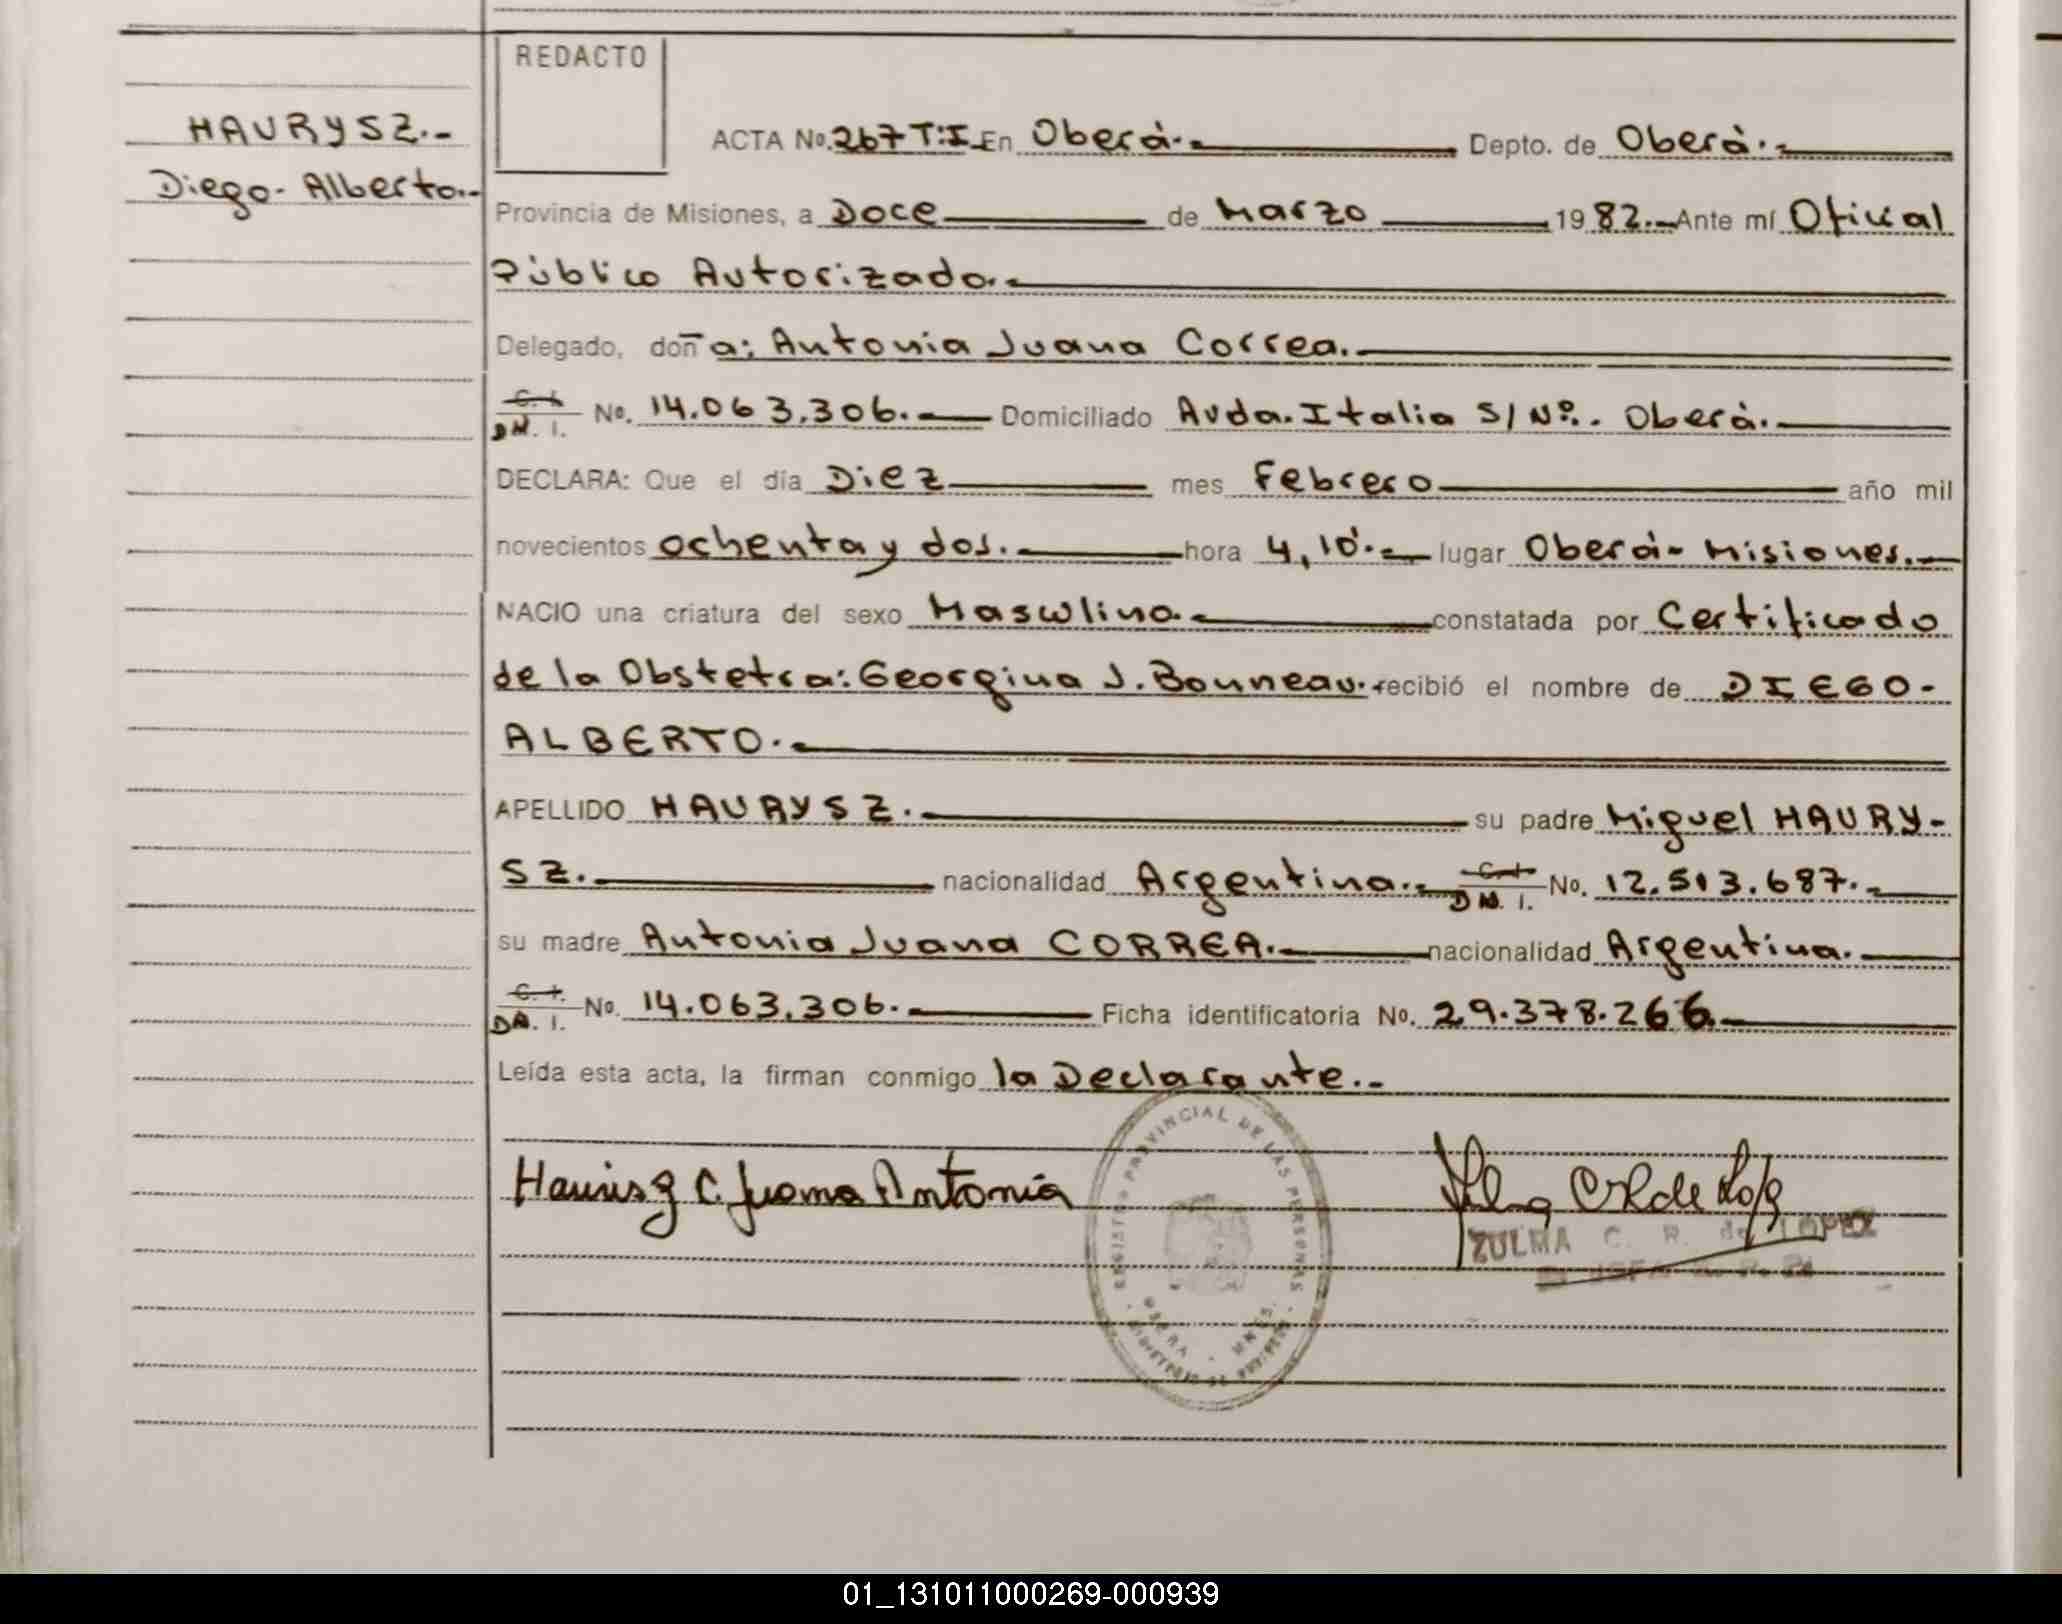 REDACTO
HAURYSZ.-
Diego- Alberto.-
ACTA No. 267 T:I En Oberá.- Depto. de Oberá.-
Provincia de Misiones, a Doce de Marzo 1982.- Ante mí Oficial
Público Autorizado.-
Delegado, doña: Antonia Juana Correa.-
C. I. DN. I. No. 14.063.306.- Domiciliado Avda. Italia S/Nº.- Oberá.-
DECLARA: Que el día Diez mes Febrero año mil
novecientos ochenta y dos.- hora 4,10.- lugar Oberá- Misiones.-
NACIO una criatura del sexo Masculino.- constatada por Certificado
de la Obstetra: Georgina J. Bonneau.- recibió el nombre de DIEGO-
ALBERTO.-
APELLIDO HAURYSZ.- su padre Miguel HAURY-
SZ.- nacionalidad Argentina.- C. I. DN. I. No. 12.513.687.-
su madre Antonia Juana CORREA.- nacionalidad Argentina.-
C. I. DN. I. No. 14.063.306.- Ficha identificatoria No. 29.378.266.-
Leída esta acta, la firman conmigo la Declarante.-
REGISTRO PROVINCIAL DE LAS PERSONAS
OBERA - MNES.
Haurisz C. Juana Antonia
ZULMA C. R. de LOPEZ
01_131011000269-000939